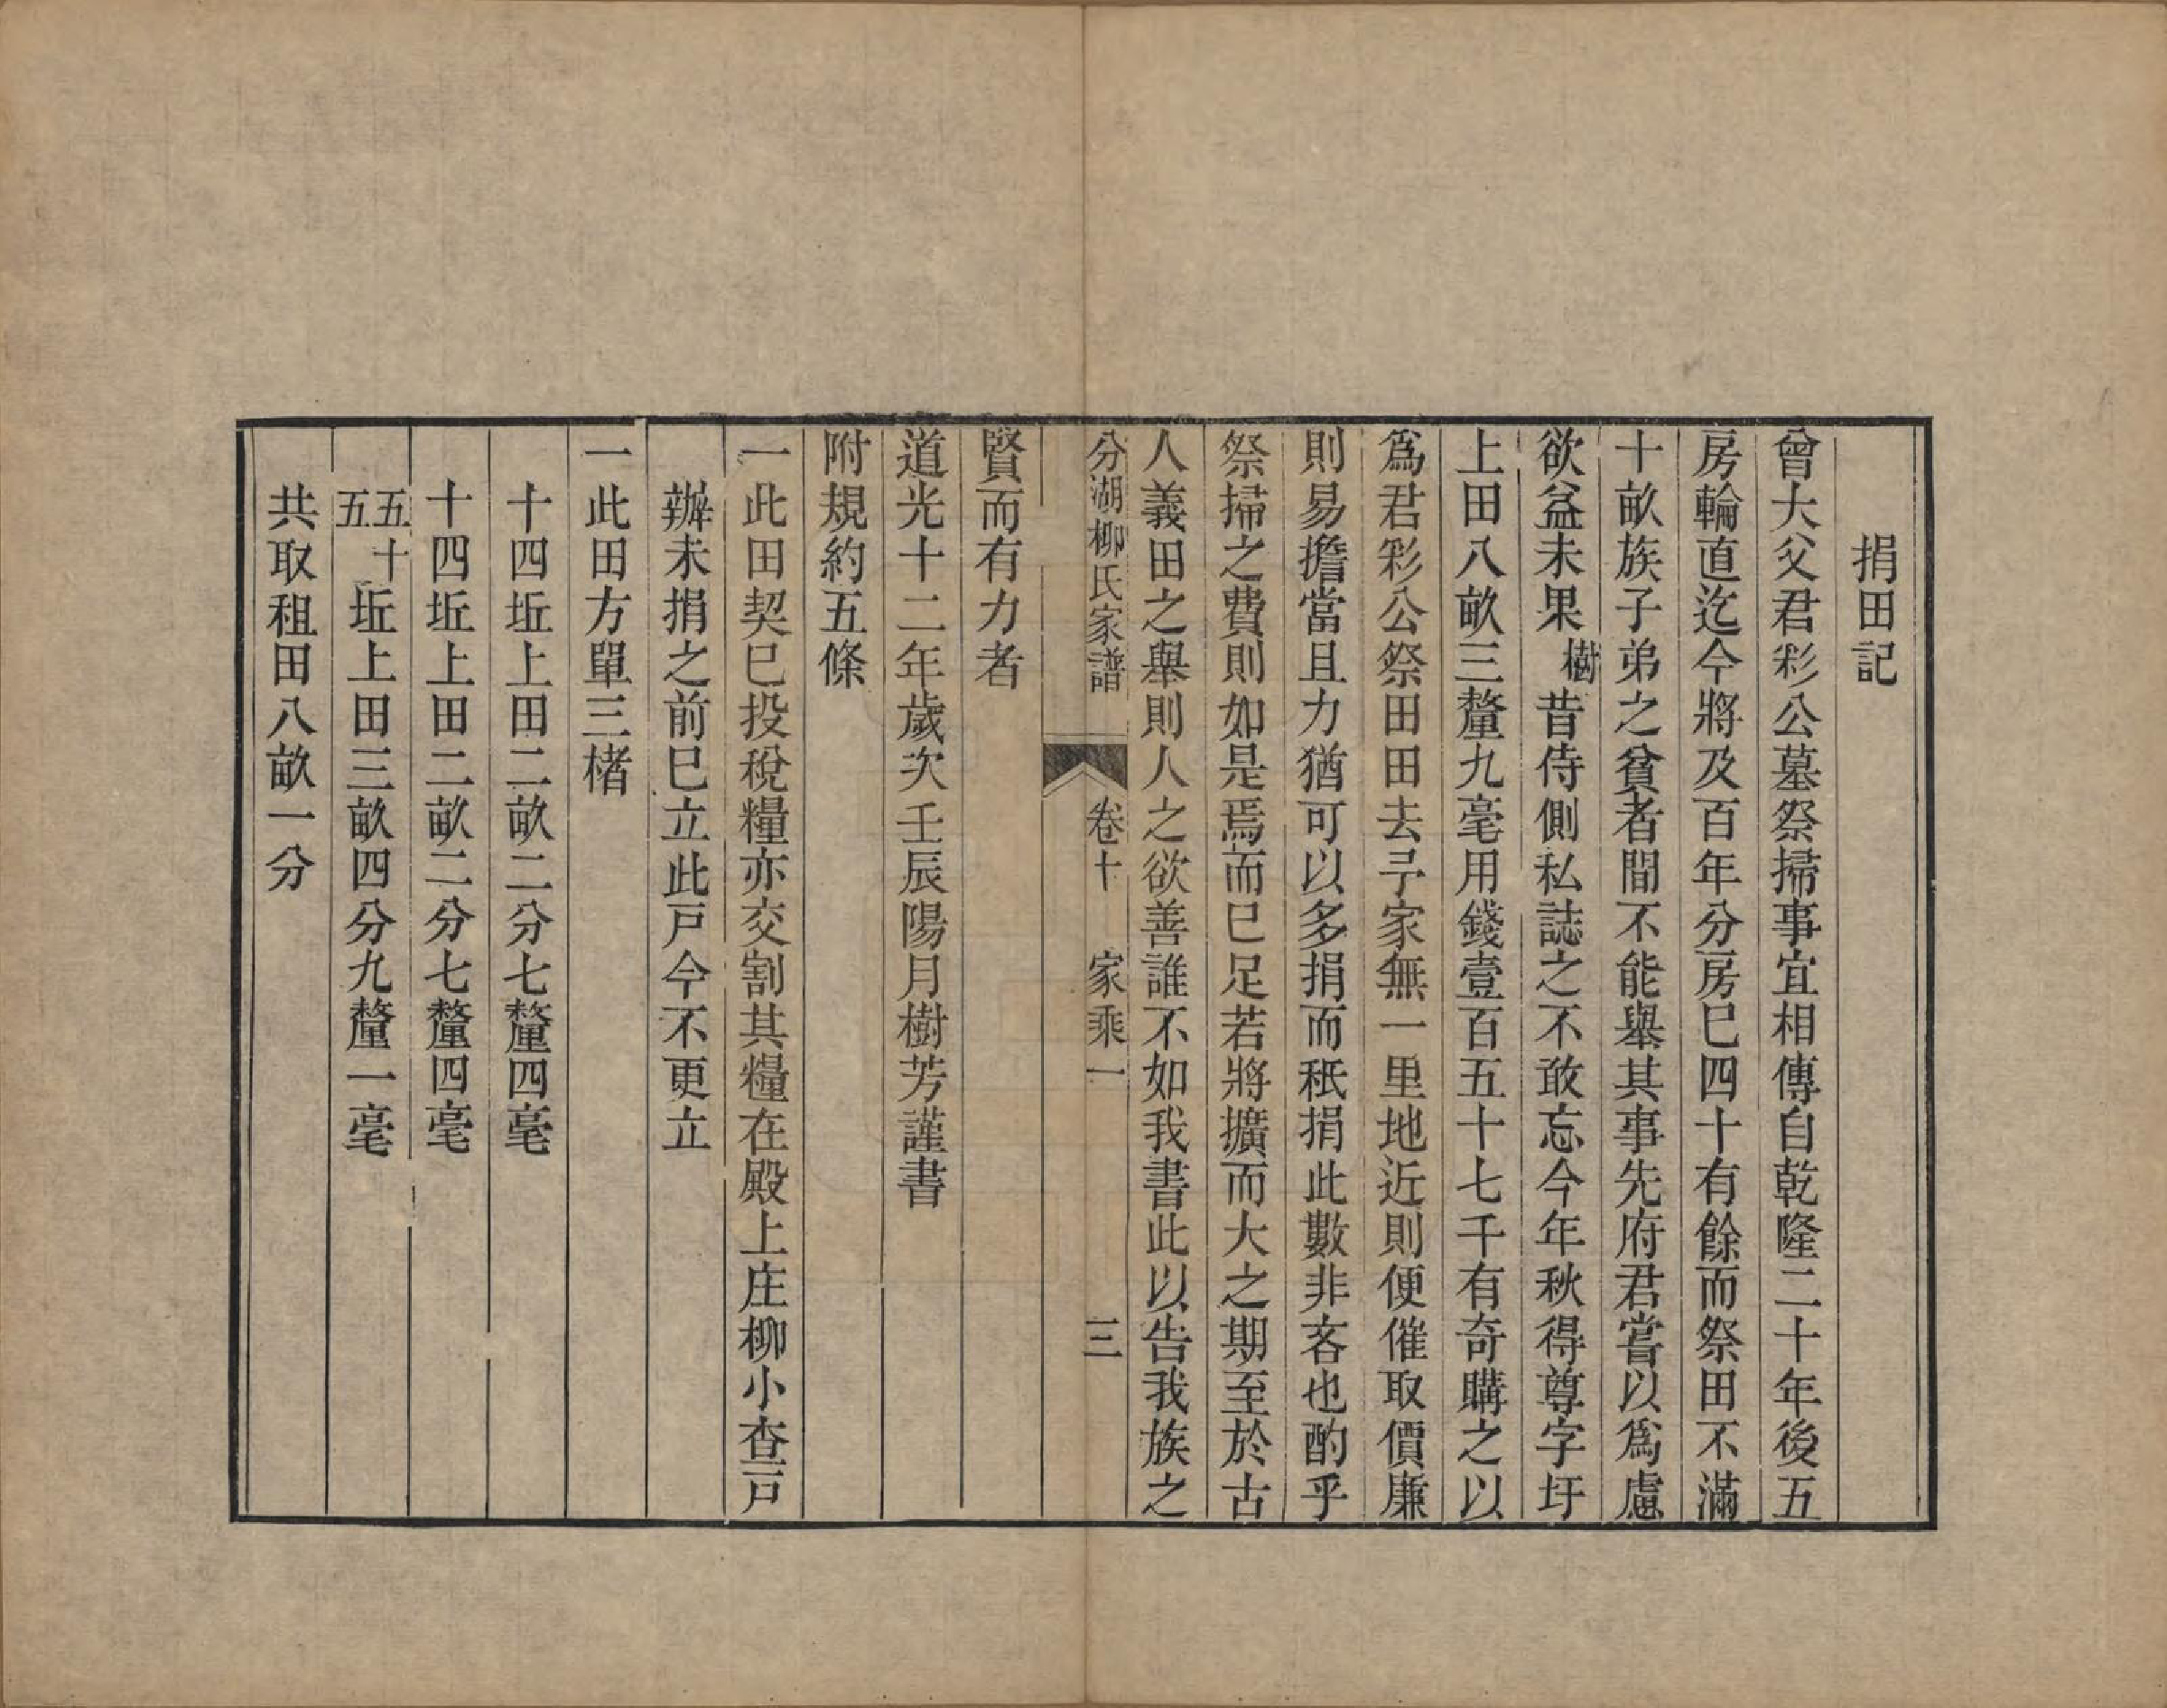 捐田記
曾大父君彩公墓祭掃事宜相傳自乾隆二十年後五
房輪直迄今將及百年分房巳四十有餘而祭田不滿
十畝族子弟之貧者間不能舉其事先府君嘗以爲慮
欲益未果樹昔侍側私誌之不敢忘今年秋得尊字圩
上田八畝三釐九毫用錢壹百五十七千有奇購之以
爲君彩公祭田田去予家無一里地近則便催取價廉
則易擔當且力猶可以多捐而秖捐此數非吝也酌乎
祭掃之費則如是焉而巳足若將擴而大之期至於古
人義田之舉則人之欲善誰不如我書此以告我族之
分湖柳氏家譜 卷十 家乘一 三
賢而有力者
道光十二年歲次壬辰陽月樹芳謹書
附規約五條
一此田契巳投稅糧亦交割其糧在殿上庄柳小查戸
辦未捐之前巳立此戸今不更立
一此田方單三楮
十四坵上田二畝二分七釐四毫
十四坵上田二畝二分七釐四毫
五十五五坵上田三畝四分九釐一毫
共取租田八畝一分